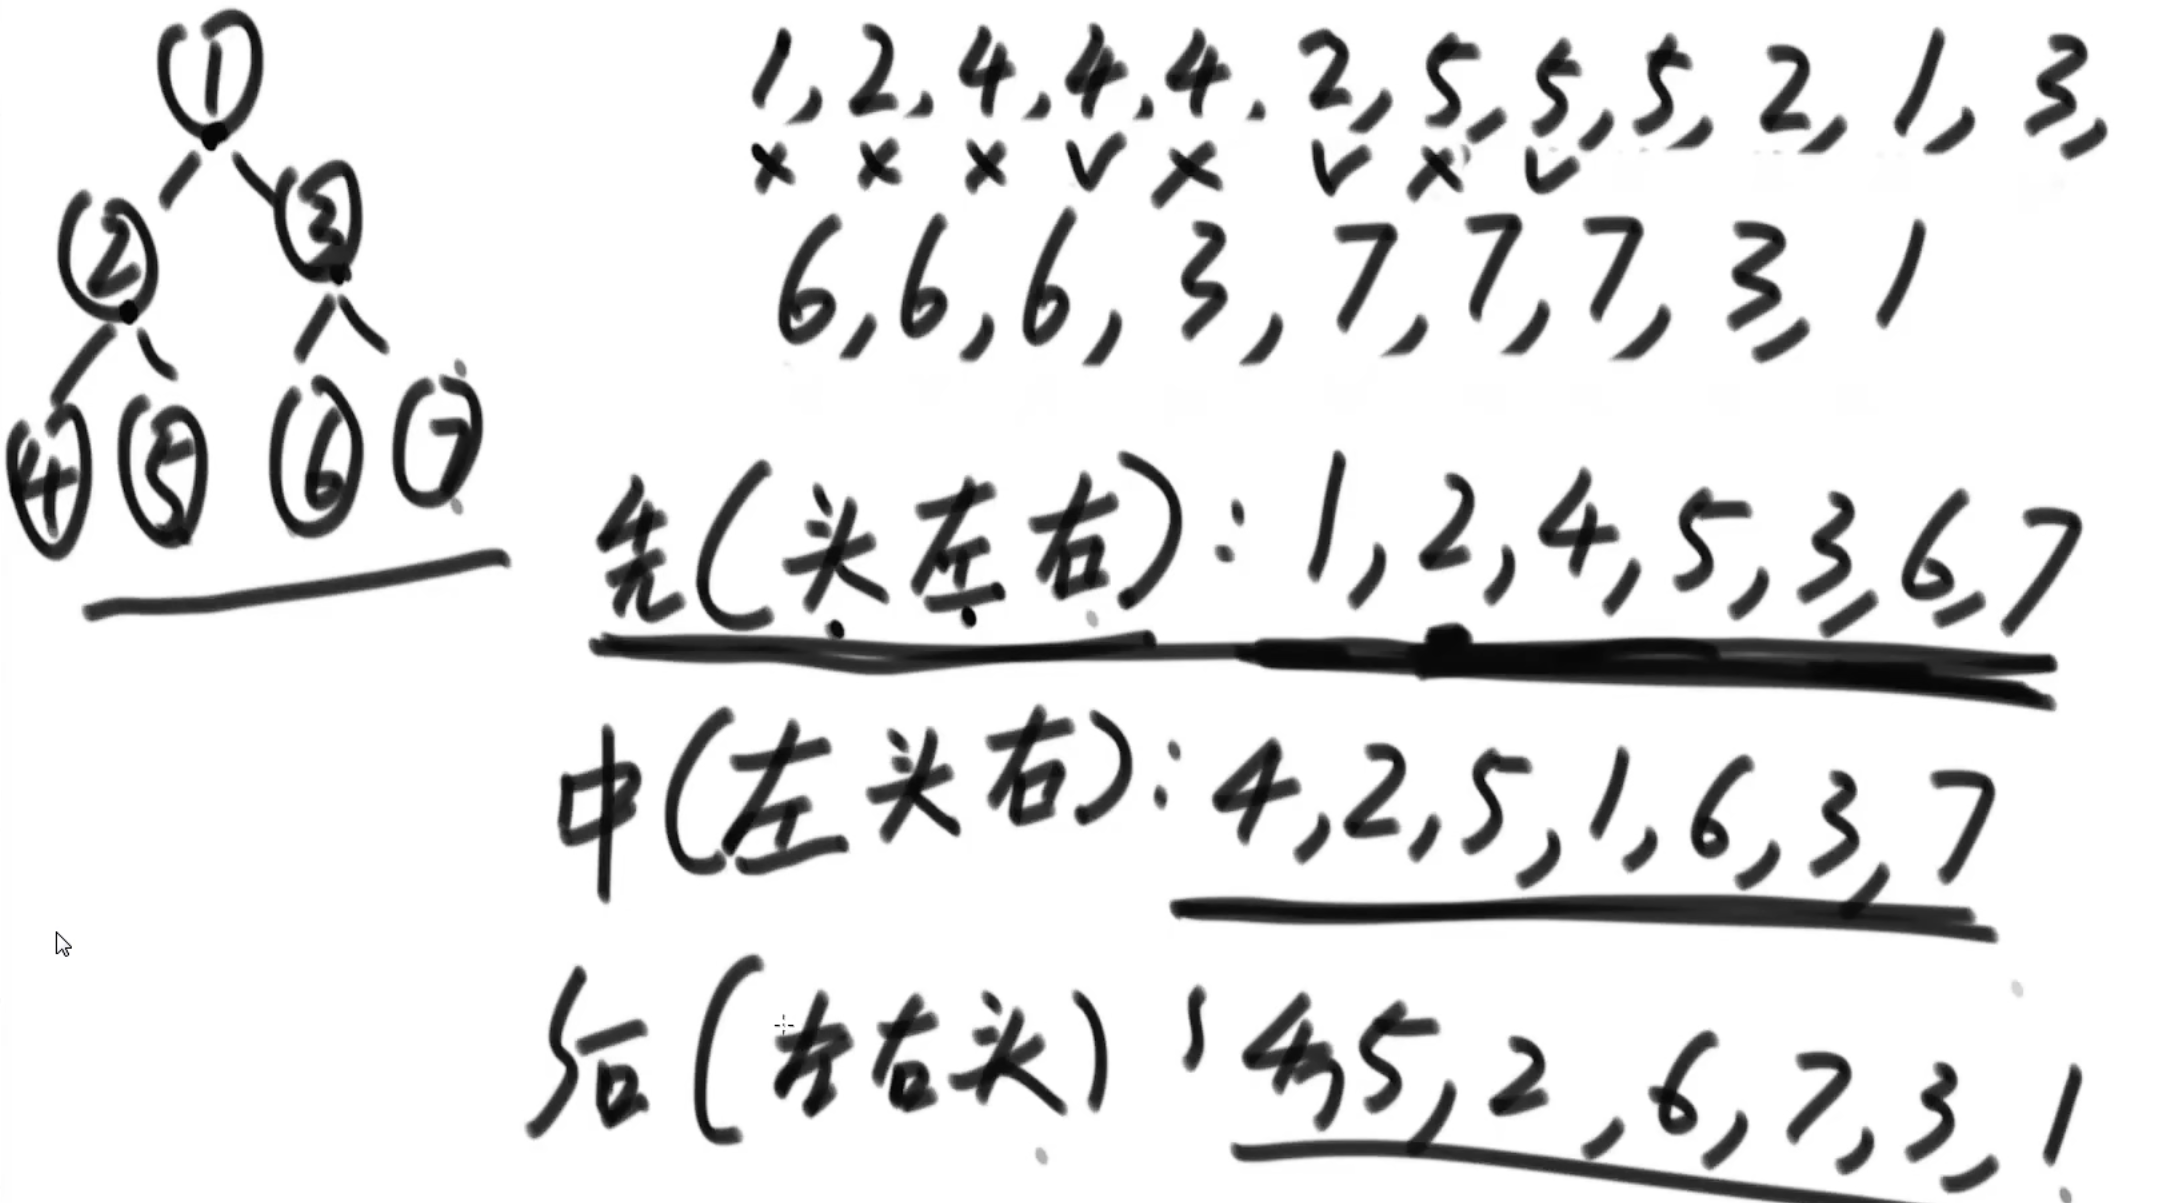 1
2 3
4 5 6 7
1, 2, 4, 4, 4, 2, 5, 5, 5, 2, 1, 3,
x x x v x v x v
6, 6, 6, 3, 7, 7, 7, 3, 1
先(头左右): 1, 2, 4, 5, 3, 6, 7
中(左头右): 4, 2, 5, 1, 6, 3, 7
后(左右头) 4, 5, 2, 6, 7, 3, 1